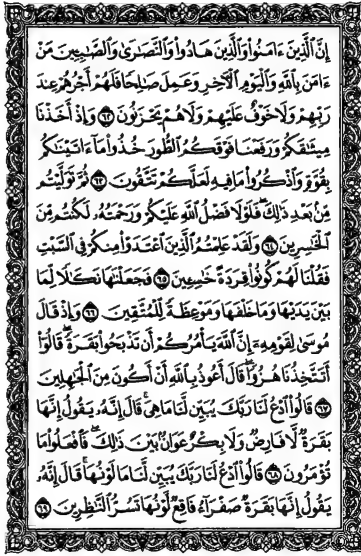 إِنَّ ٱلَّذِينَ ءَامَنُوا۟ وَٱلَّذِينَ هَادُوا۟ وَٱلنَّصَٰرَىٰ وَٱلصَّٰبِـِٔينَ مَنْ
ءَامَنَ بِٱللَّهِ وَٱلْيَوْمِ ٱلْـَٔاخِرِ وَعَمِلَ صَٰلِحًا فَلَهُمْ أَجْرُهُمْ عِندَ
رَبِّهِمْ وَلَا خَوْفٌ عَلَيْهِمْ وَلَا هُمْ يَحْزَنُونَ ٦٢ وَإِذْ أَخَذْنَا
مِيثَٰقَكُمْ وَرَفَعْنَا فَوْقَكُمُ ٱلطُّورَ خُذُوا۟ مَآ ءَاتَيْنَٰكُم
بِقُوَّةٍ وَٱذْكُرُوا۟ مَا فِيهِ لَعَلَّكُمْ تَتَّقُونَ ٦٣ ثُمَّ تَوَلَّيْتُم
مِّنۢ بَعْدِ ذَٰلِكَ ۖ فَلَوْلَا فَضْلُ ٱللَّهِ عَلَيْكُمْ وَرَحْمَتُهُۥ لَكُنتُم مِّنَ
ٱلْخَٰسِرِينَ ٦٤ وَلَقَدْ عَلِمْتُمُ ٱلَّذِينَ ٱعْتَدَوْا۟ مِنكُمْ فِى ٱلسَّبْتِ
فَقُلْنَا لَهُمْ كُونُوا۟ قِرَدَةً خَٰسِـِٔينَ ٦٥ فَجَعَلْنَٰهَا نَكَٰلًا لِّمَا
بَيْنَ يَدَيْهَا وَمَا خَلْفَهَا وَمَوْعِظَةً لِّلْمُتَّقِينَ ٦٦ وَإِذْ قَالَ
مُوسَىٰ لِقَوْمِهِۦٓ إِنَّ ٱللَّهَ يَأْمُرُكُمْ أَن تَذْبَحُوا۟ بَقَرَةً ۖ قَالُوٓا۟
أَتَتَّخِذُنَا هُزُوًا ۖ قَالَ أَعُوذُ بِٱللَّهِ أَنْ أَكُونَ مِنَ ٱلْجَٰهِلِينَ
٦٧ قَالُوا۟ ٱدْعُ لَنَا رَبَّكَ يُبَيِّن لَّنَا مَا هِىَ ۚ قَالَ إِنَّهُۥ يَقُولُ إِنَّهَا
بَقَرَةٌ لَّا فَارِضٌ وَلَا بِكْرٌ عَوَانٌۢ بَيْنَ ذَٰلِكَ ۖ فَٱفْعَلُوا۟ مَا
تُؤْمَرُونَ ٦٨ قَالُوا۟ ٱدْعُ لَنَا رَبَّكَ يُبَيِّن لَّنَا مَا لَوْنُهَا ۚ قَالَ إِنَّهُۥ
يَقُولُ إِنَّهَا بَقَرَةٌ صَفْرَآءُ فَاقِعٌ لَّوْنُهَا تَسُرُّ ٱلنَّٰظِرِينَ ٦٩